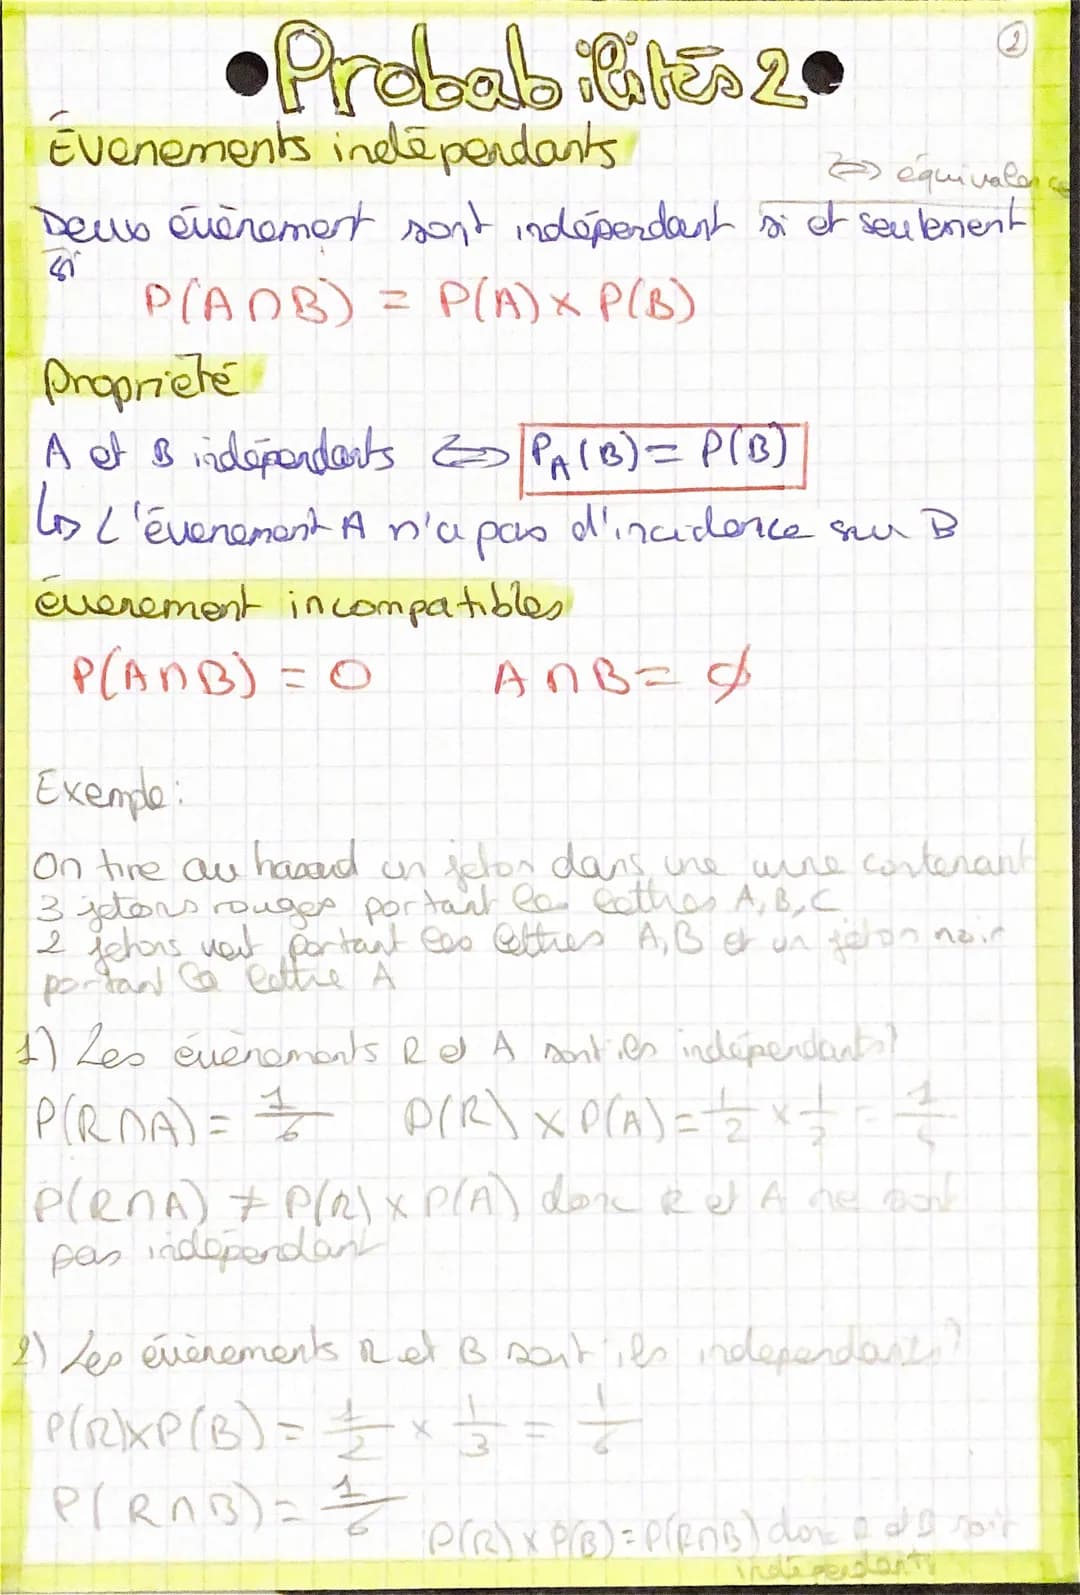 2
• Probabilités 2 •
Évenements indépendants
<=> équivalence
Deux évènement sont indépendant si et seulement
si
P(A∩B) = P(A) x P(B)
Propriété
A et B indépendants <=> P_A(B) = P(B)
↳ L'évenement A n'a pas d'incidence sur B
évenement incompatibles
P(A∩B) = 0 A∩B = ∅
Exemple:
On tire au hasard un jeton dans une urne contenant
3 jetons rouges portant les lettres A, B, C
2 jetons vert portant les lettres A, B et un jeton noir
portant la lettre A
1) Les évènements R et A sont ils indépendants?
P(R∩A) = 1/6 P(R) x P(A) = 1/2 x 1/2 = 1/4
P(R∩A) ≠ P(R) x P(A) donc R et A ne sont
pas indépendant
2) Les évènements R et B sont ils independants?
P(R)xP(B) = 1/2 x 1/3 = 1/6
P(R∩B) = 1/6
P(R) x P(B) = P(R∩B) donc R et B sont
indépendants